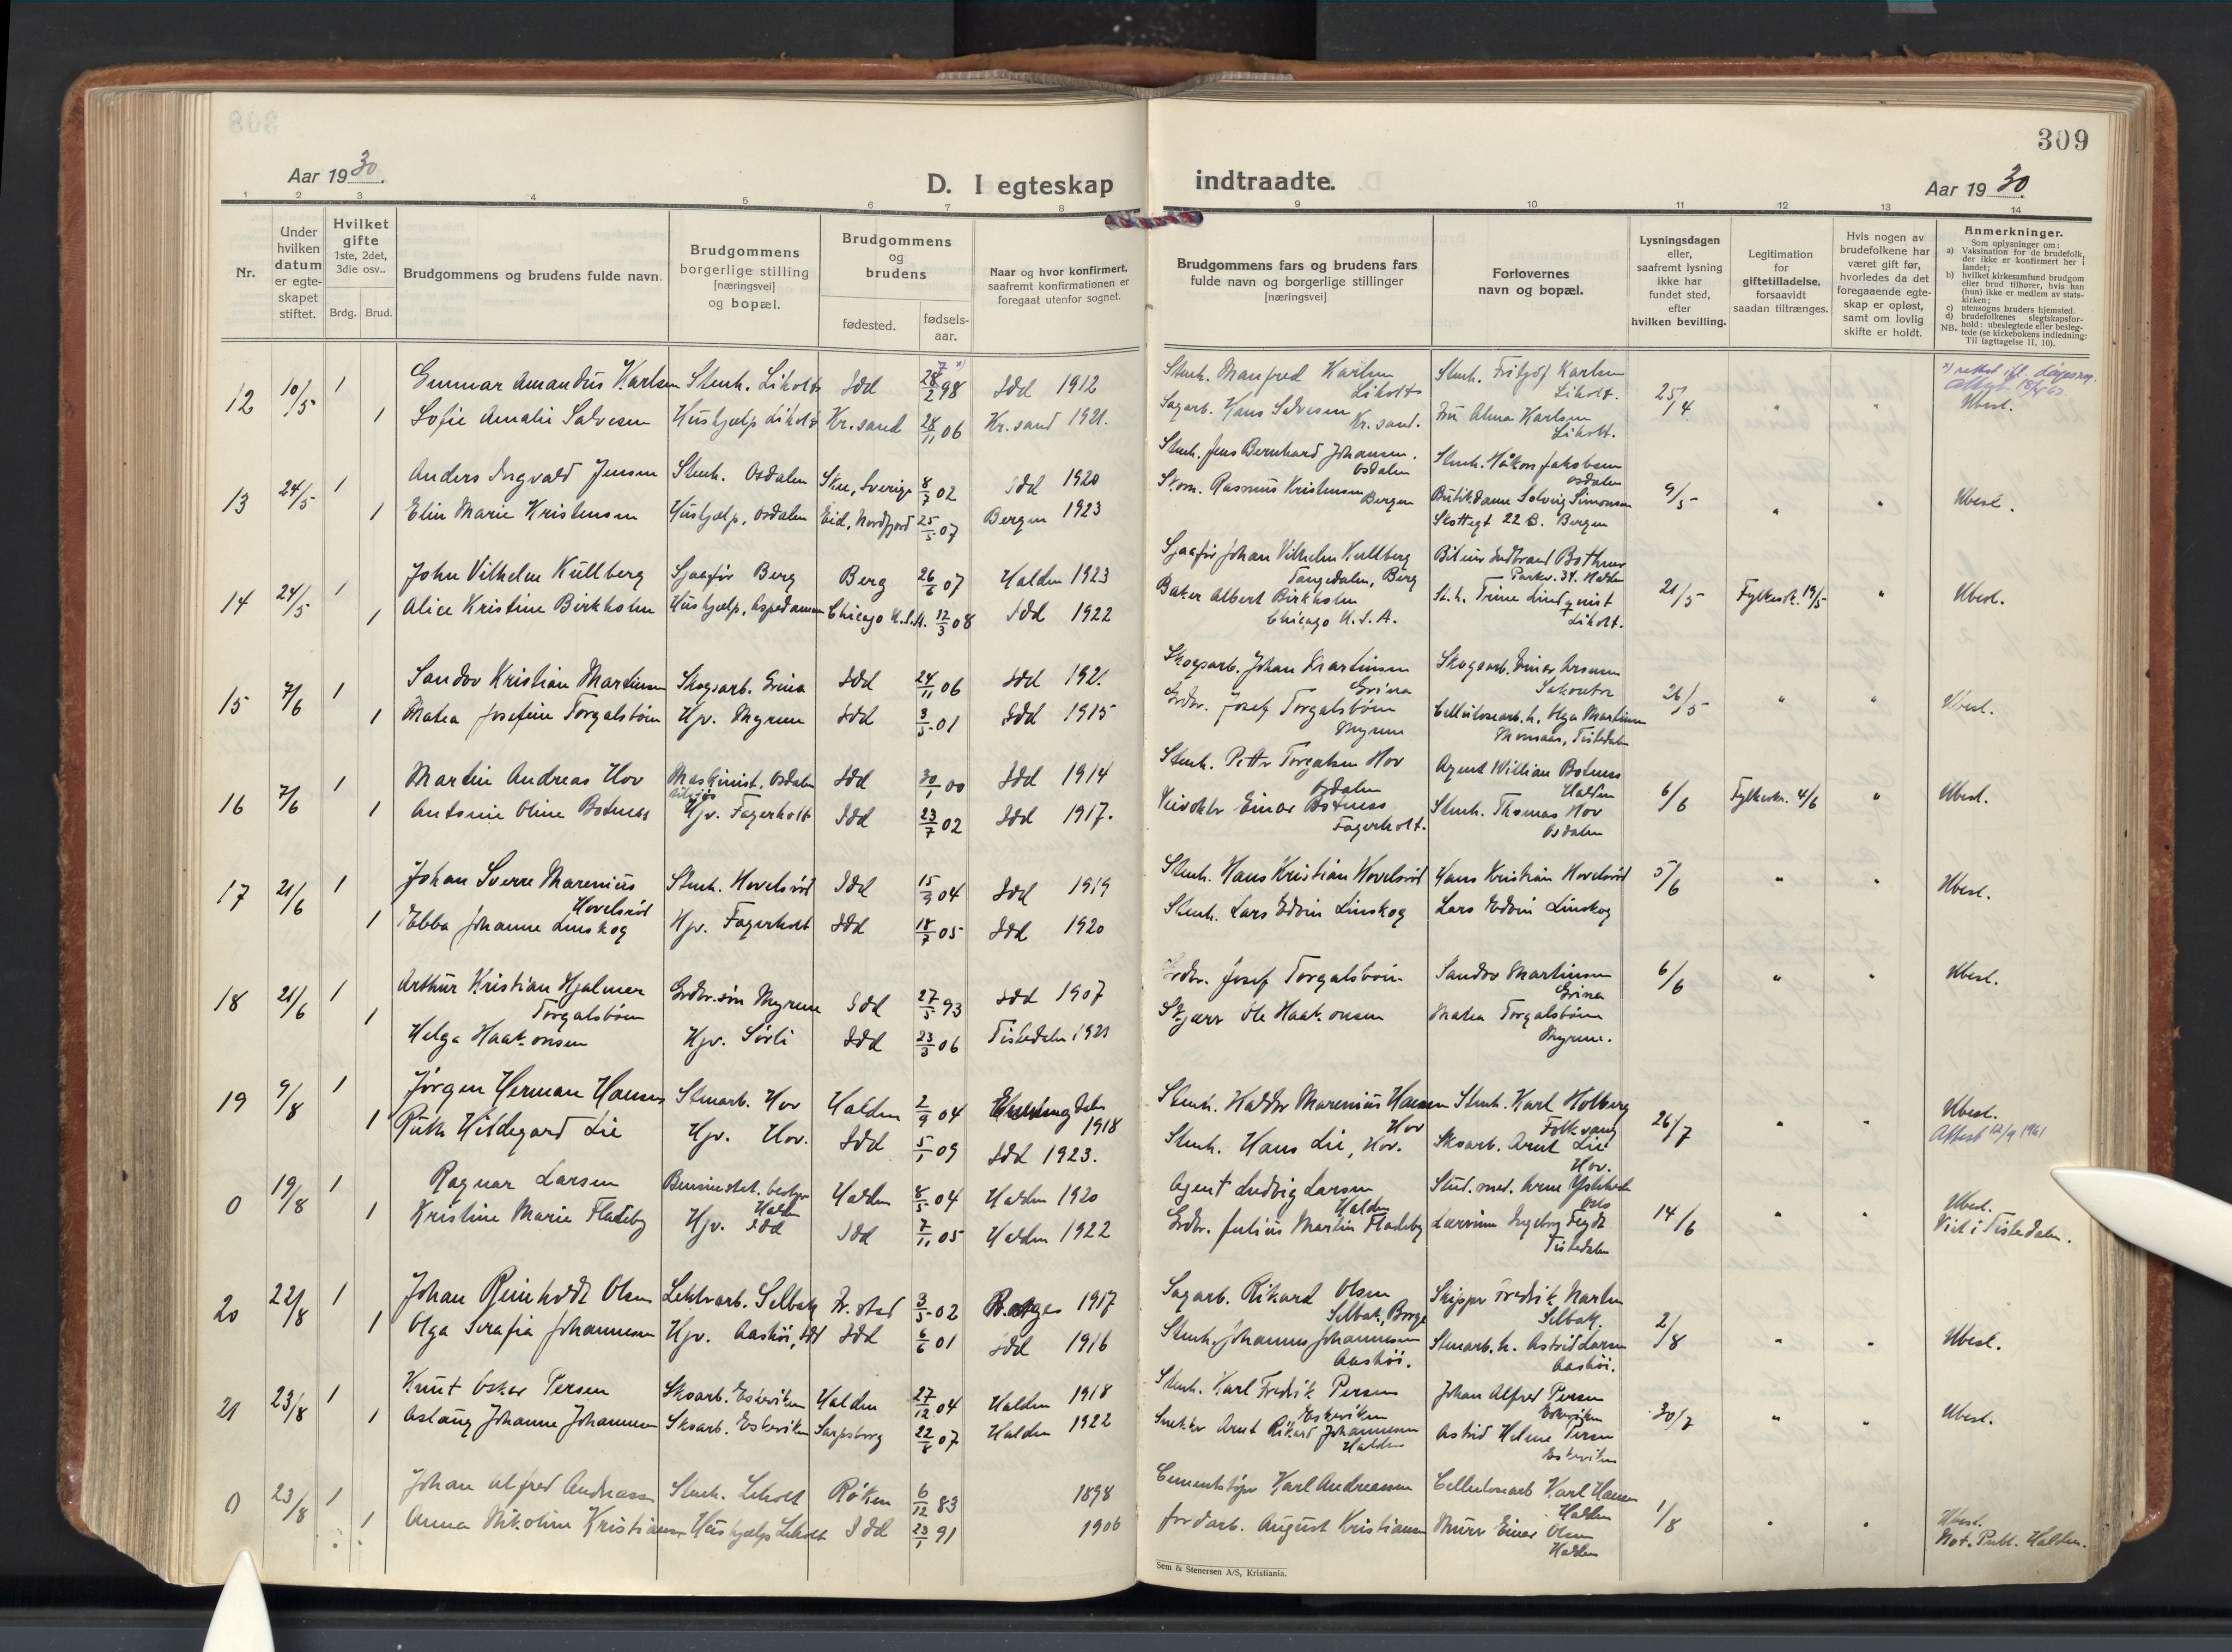 309
Aar 1930.
D. I egteskap indtraadte.
Aar 1930.
1 2 3 4 5 6 7 8 9 10 11 12 13 14
Nr.
Under hvilken datum er egte-skapet stiftet.
Hvilket gifte 1ste, 2det, 3die osv..
Brdg. Brud.
Brudgommens og brudens fulde navn.
Brudgommens borgerlige stilling [næringsvei] og bopæl.
Brudgommens og brudens
fødested.
fødsels-aar.
Naar og hvor konfirmert, saafremt konfirmationen er foregaat utenfor sognet.
Brudgommens fars og brudens fars fulde navn og borgerlige stillinger [næringsvei]
Forlovernes navn og bopæl.
Lysningsdagen eller, saafremt lysning ikke har fundet sted, efter hvilken bevilling.
Legitimation for giftetilladelse, forsaavidt saadan tiltrænges.
Hvis nogen av brudefolkene har været gift før, hvorledes da det foregaaende egte-skap er opløst, samt om lovlig skifte er holdt.
Anmerkninger.
Som oplysninger om:
a) Vaksination for de brudefolk, der ikke er konfirmert her i landet;
b) hvilket kirkesamfund brudgom eller brud tilhører, hvis han (hun) ikke er medlem av stats-kirken;
c) utensogns bruders hjemsted.
d) brudefolkenes slegtskapsfor-hold: ubeslegtede eller besleg-tede (se kirkebokens indledning: NB. Til iagttagelse II, 10).
12 10/5 1 Gunnar Amandus Karlsen Stenh. Liholt Idd 28/2 98 Idd 1912 Stenh. Manfred Karlsen Liholt Stenh. Fritjof Karlsen Liholt. 25/4 " " Ubesl.
1 Sofie Amalie Salvesen Hushjælp Liholt Kr.sand 28/11 06 Kr.sand 1921. Sagarb. Hans Salvesen Kr.sand. Fru Alma Karlsen Liholt.
13 24/5 1 Anders Ingvald Jensen Stenh. Osdalen Skee, Sverige 02 Idd 1920 Stenh. Jens Bernhard Johansen. Osdalen Stenh. Håkon Jakobsen Osdalen 9/5 " " Ubesl.
1 Elin Marie Kristensen Hushjælp, Osdalen Eid, Nordfjord 25/5 07 Bergen 1923 Rasmus Kristensen Bergen Butikdame Solveig Simonsen 22 B. Bergen
14 24/5 1 John Vilhelm Kullberg Sjaafør Berg Berg 26/6 07 Halden 1923 Sjaafør Johan Vilhelm Kullberg Tangedalen, Berg Parkv. 34. Halden 21/5 Fylkesk. 19/5 " Ubesl.
1 Alice Kristine Birkholm Hushjælp, Aspedammen Chicago U.S.A. 12/3 08 Idd 1922 Baker Albert Birkholm Chicago U.S.A. St.h. Trine Lindqvist Liholt.
15 7/6 1 Sandov Kristian Martinsen Skogsarb. Grina Idd 24/11 06 Idd 1921. Skogsarb. Johan Martinsen Grina Skogsarb. Einar 26/5 " " Ubesl.
1 Matea Josefine Torgalsbøen Hjv. Myrene Idd 3/5 01 Idd 1915 Grdbr. Josef Torgalsbøen Myrene Cellulosearb.h. Olga Martinsen Tistedalen
16 7/6 1 Martin Andreas Hov Maskinist, Osdalen Idd 30/1 00 Idd 1914 Stenh. Petter Torgalsen Hov Osdalen Agent William Botness Halden 6/6 Fylkesk. 4/6 " Ubesl.
1 Antonie Oline Botness Hjv. Fagerholt Idd 23/7 02 Idd 1917. Veivokter Einar Botness Fagerholt. Stenh. Thomas Hov Osdalen
17 21/6 1 Johan Sverre Marenius Hovelsrød Stenh. Hovelsrød Idd 15/9 04 Idd 1919 Stenh. Hans Kristian Hovelsrød Hans Kristian Hovelsrød 5/6 " " Ubesl.
1 Ebba Johanne Linskog Hjv. Fagerholt Idd 18/7 05 Idd 1920 Stenh. Lars Edvin Linskog Lars Edvin Linskog
18 21/6 1 Arthur Kristian Hjalmar Torgalsbøen Grdbr.søn Myrene Idd 27/5 93 Idd 1907 Grdbr. Josef Torgalsbøen Sandov Martinsen Grina 6/6 " " Ubesl.
1 Helga Haakonsen Hjv. Sørli Idd 23/3 06 Tistedalen 1921 Ole Haakonsen Matea Torgalsbøen Myrene.
19 9/8 1 Jørgen Herman Hansen Stenarb. Hov Halden 2/9 04 1918 Stenh. Haldor Marenius Hansen Hov Stenh. Karl Holberg Folkvang 26/7 " " Ubesl.
1 Ruth Hildegard Lie Hjv. Hov. Idd 5/1 09 Idd 1923. Stenh. Hans Lie, Hov. Skoarb. Arnt Lie Hov. Attest 12/9 1961
0 19/8 1 Ragnar Larsen Bensinstat. bestyr Halden Halden 8/5 04 Halden 1920 Agent Ludvig Larsen Halden Stud. med. Arne Oslo 14/6 " " Ubesl.
1 Kristine Marie Fladeby Hjv. Idd Idd 7/11 05 Halden 1922 Grdbr. Julius Martin Fladeby Lærerinne Ingeborg Tistedalen Viet i Tistedalen.
20 22/8 1 Johan Reinholdt Olsen Selbak Fr.stad 3/5 02 1917 Sagarb. Rikard Olsen Selbak, Borge Skipper Fredrik Selbak. 2/8 " " Ubesl.
1 Olga Serafia Johannesen Hjv. Aashøi, Idd Idd 6/6 01 Idd 1916 Stenh. Johannes Johannesen Aashøi. Stenarb.h. Astrid Larsen Aashøi.
21 23/8 1 Knut Oskar Persen Skoarb. Eskeviken Halden 27/12 04 Halden 1918 Stenh. Karl Fredrik Persen Eskeviken Johan Alfred Persen Eskeviken 30/7 " " Ubesl.
1 Aslaug Johanne Johannesen Skoarb. Eskeviken Sarpsborg 22/8 07 Halden 1922 Snekker Arnt Rikard Johannesen Halden Astrid Helene Persen Eskeviken
0 23/8 1 Johan Alfred Andreassen Stenh. Liholt Røken 6/12 83 1898 Cementstøper Karl Andreassen Cellulosearb Karl Hansen Halden 1/8 " " Ubesl.
1 Anna Nikoline Kristiansen Hushjælp Liholt Idd 23/1 91 1906 Jordarb. August Kristiansen Murer Einar Olsen Halden Not. Publ. Halden.
Sem & Stenersen A/S, Kristiania.